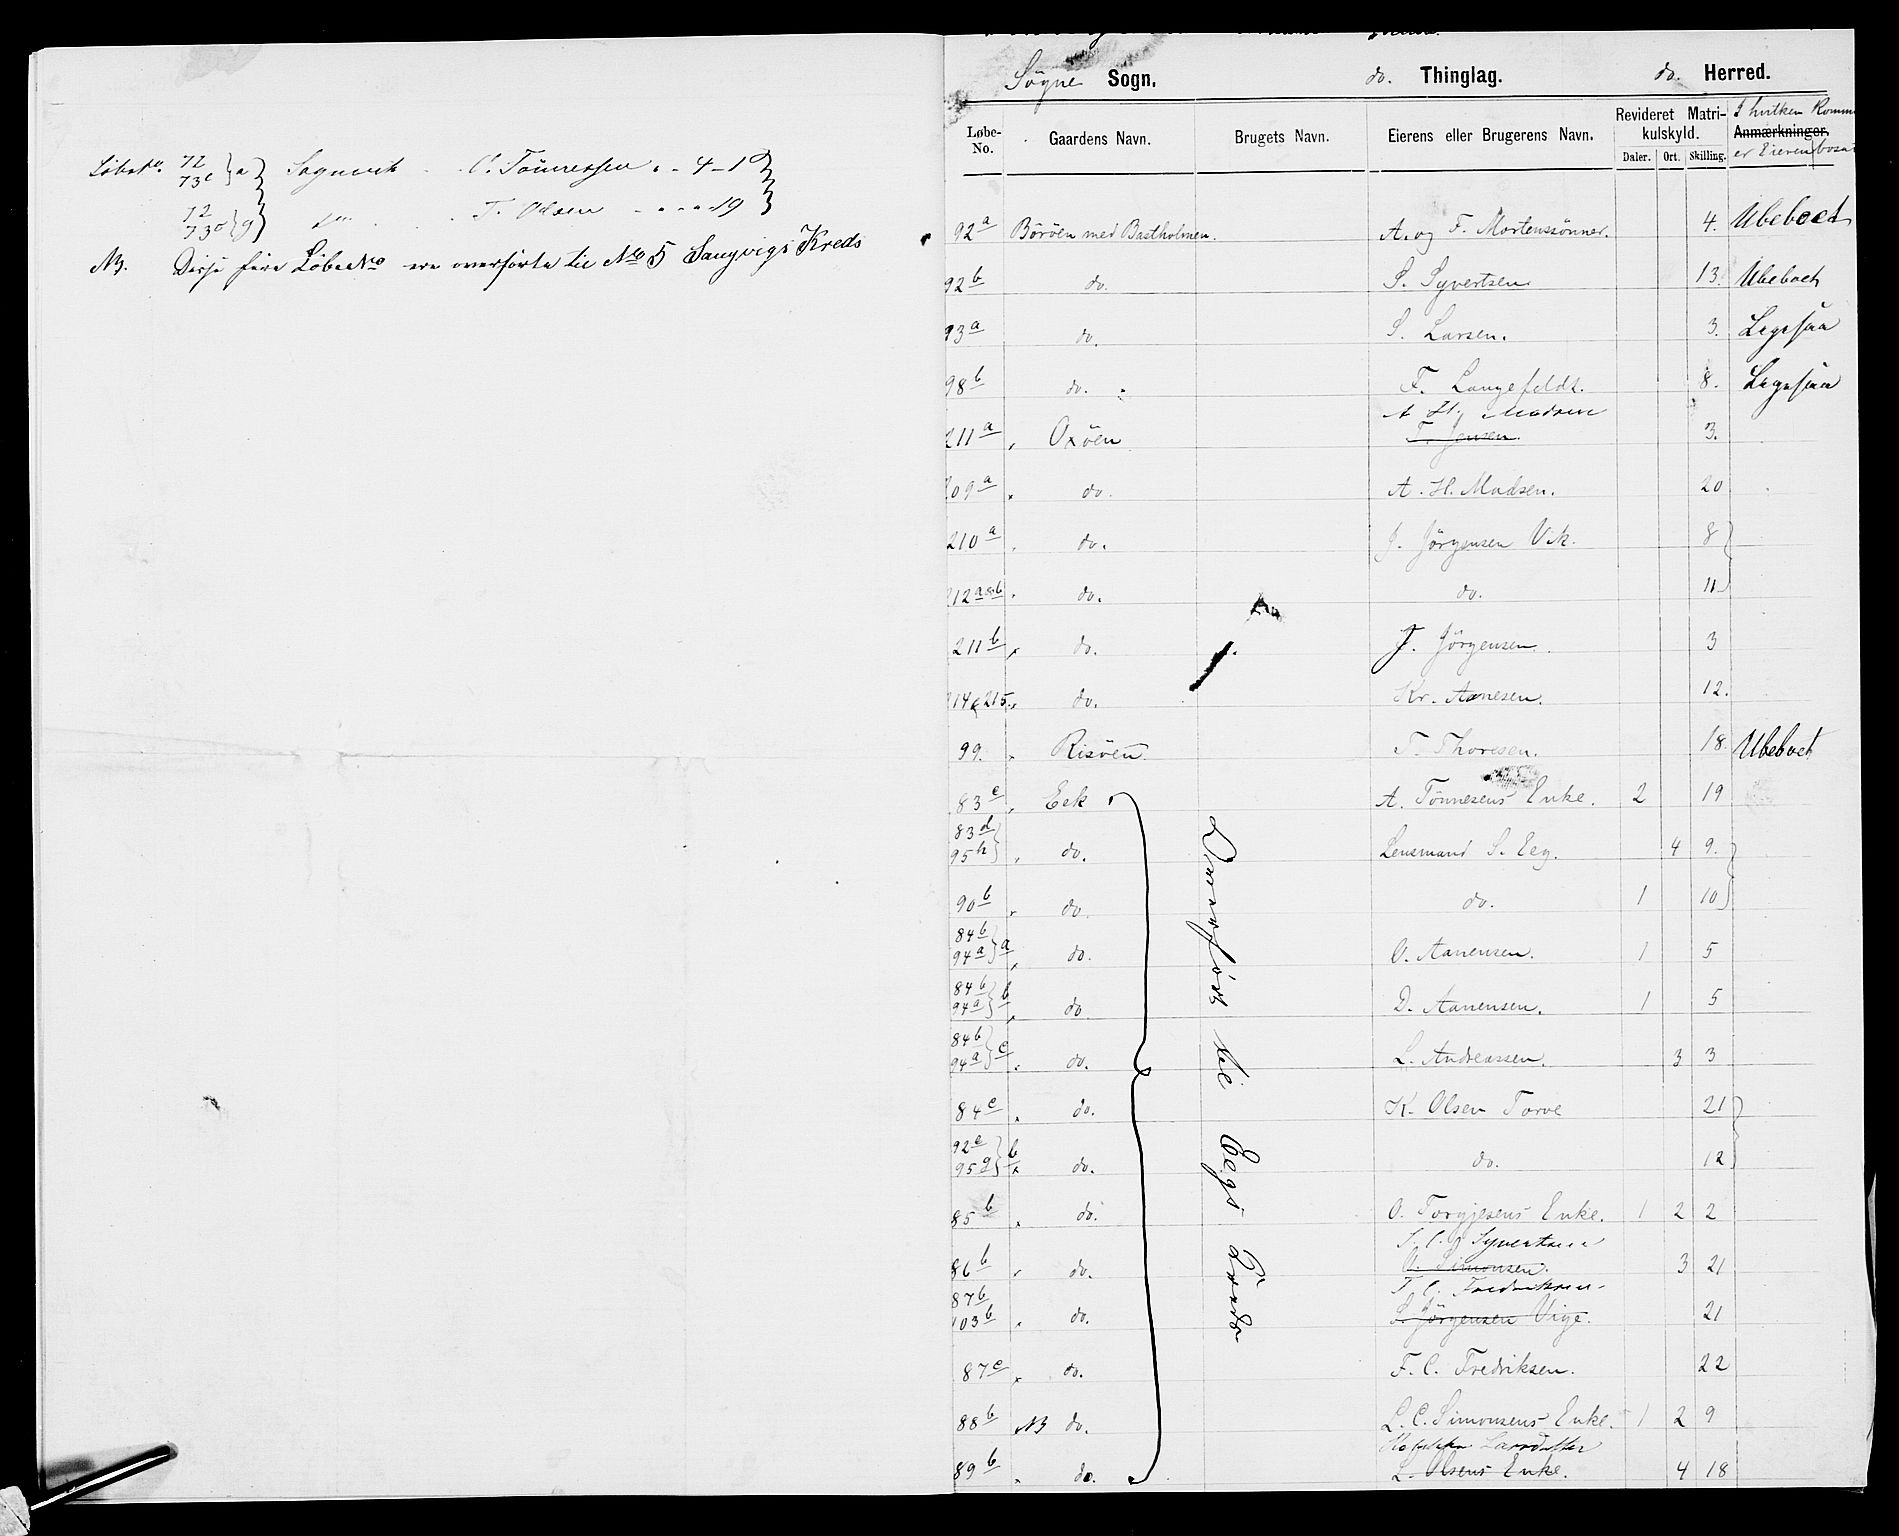 Löbe No. 72 73c } a } Sognevik C. Tönnessen „ - 4 - 19 }
72 73c } g } do T. Olsen - „ - „ - 19 }
NB. Disse före LöbeNo ere overförte til No 5 Langvigs Kreds
Sögne Sogn. do. Thinglag. do. Herred.
Løbe-No. Gaardens Navn. Brugets Navn. Eierens eller Brugerens Navn. Revideret Matrikulskyld. Daler. Ort. Skilling. Anmærkninger. I hvilken Komm er Eieren bosat
92a Böröen med Bastholmen. A. og F. Mortenssönner. 4. Ubeboet
92b do. S. Syvertsen 13. Ubeboet
93a do. S. Larsen. 3.
98b do. F. Langefeldt. 8.
A. H. Madsen
211a „ Oxöen T. Jensen. 3.
209a „ do. A. H. Madsen. 20
210a „ do. J. Jörgensen Vik. 8 }
212a&b „ do. do. 11 }
211b „ do. J. Jörgensen. 3
214 & 215 „ do. Kr. Aanesen. 12.
99. „ Risöen T. Thoresen. 18. Ubeboet
83c „ Eek A. Tönnesens Enke. 2 19
83d 95h } „ do. Lensmand S. Eeg. 4 9. }
90b „ do. do. 1 10 }
84b 94a } a „ do. O. Aanensen. 1 5
84b 94a } b „ do. D. Aanensen. 1 5
84b 94a } c „ do. L. Andreassen. 3 3
84c „ do. K. Olsen Torve 21 }
92c 95g } b „ do. do. 12 }
85b „ do. O. Torgjesens Enke. 1 2 2
T. C. Syvertsen
86b „ do. O. Simonsen. 3 21
F. C. Fredriksen
87b 103b „ do. S. Jörgensen Vige. 21
87c „ do. F. C. Fredriksen. 22
88b NB do. L. C. Simonsens Enke. 1 2 9
Larsdatter
89b „ do. L. Olsens Enke. 4 18
Overfört til Eegs Kreds